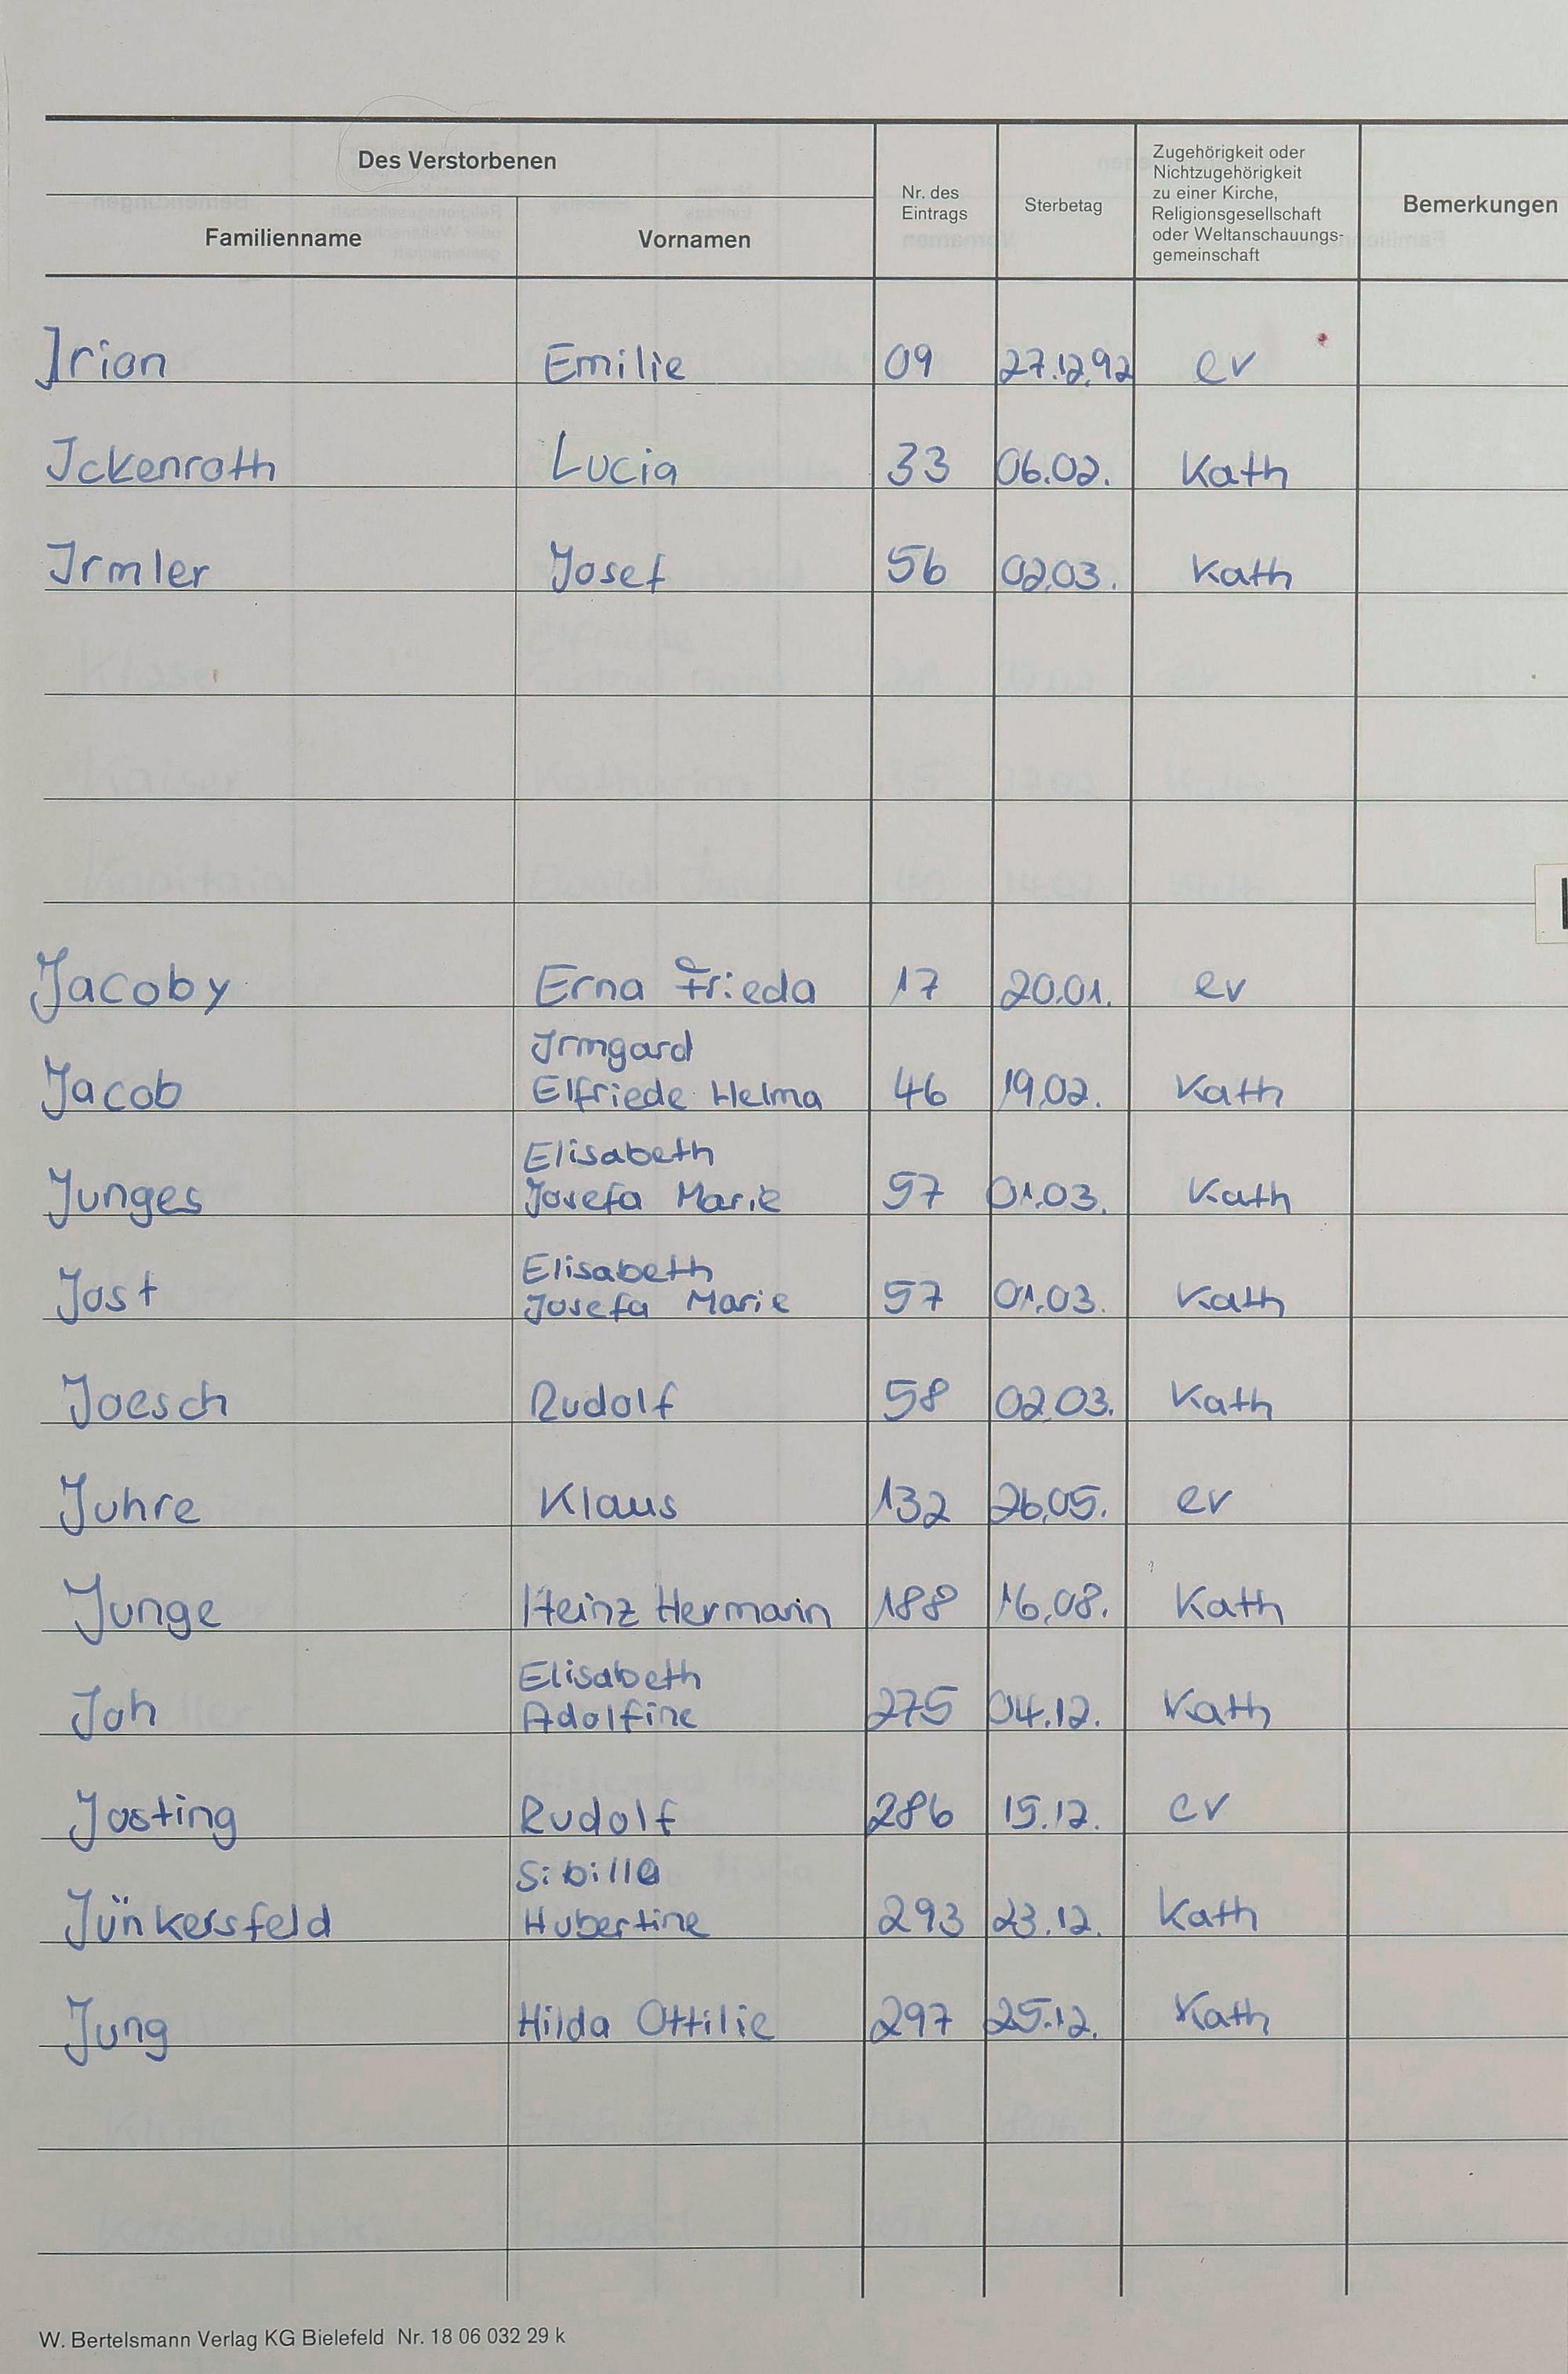 Des Verstorbenen
Familienname
Vornamen
Nr. des
Eintrags
Sterbetag
Zugehörigkeit oder
Nichtzugehörigkeit
zu einer Kirche,
Religionsgesellschaft
oder Weltanschauungs-
gemeinschaft
Bemerkungen
Irion Emilie 09 27.12.92 ev
Ickenroth Lucia 33 06.02. Kath
Irmler Josef 56 02.03. Kath
Jacoby Erna Frieda 17 20.01. ev
Irmgard
Jacob Elfriede Helma 46 19.02. Kath
Elisabeth
Junges Josefa Marie 57 01.03. Kath
Elisabeth
Jost Josefa Marie 57 01.03. Kath
Joesch Rudolf 58 02.03. Kath
Juhre Klaus 132 26.05. ev
Junge Heinz Hermann 188 16.08. Kath
Elisabeth
Joh Adolfine 275 04.12. Kath
Josting Rudolf 286 15.12. ev
Sibilla
Jünkersfeld Hubertine 293 23.12. Kath
Jung Hilda Ottilie 297 25.12. Kath
W. Bertelsmann Verlag KG Bielefeld Nr. 18 06 032 29 k